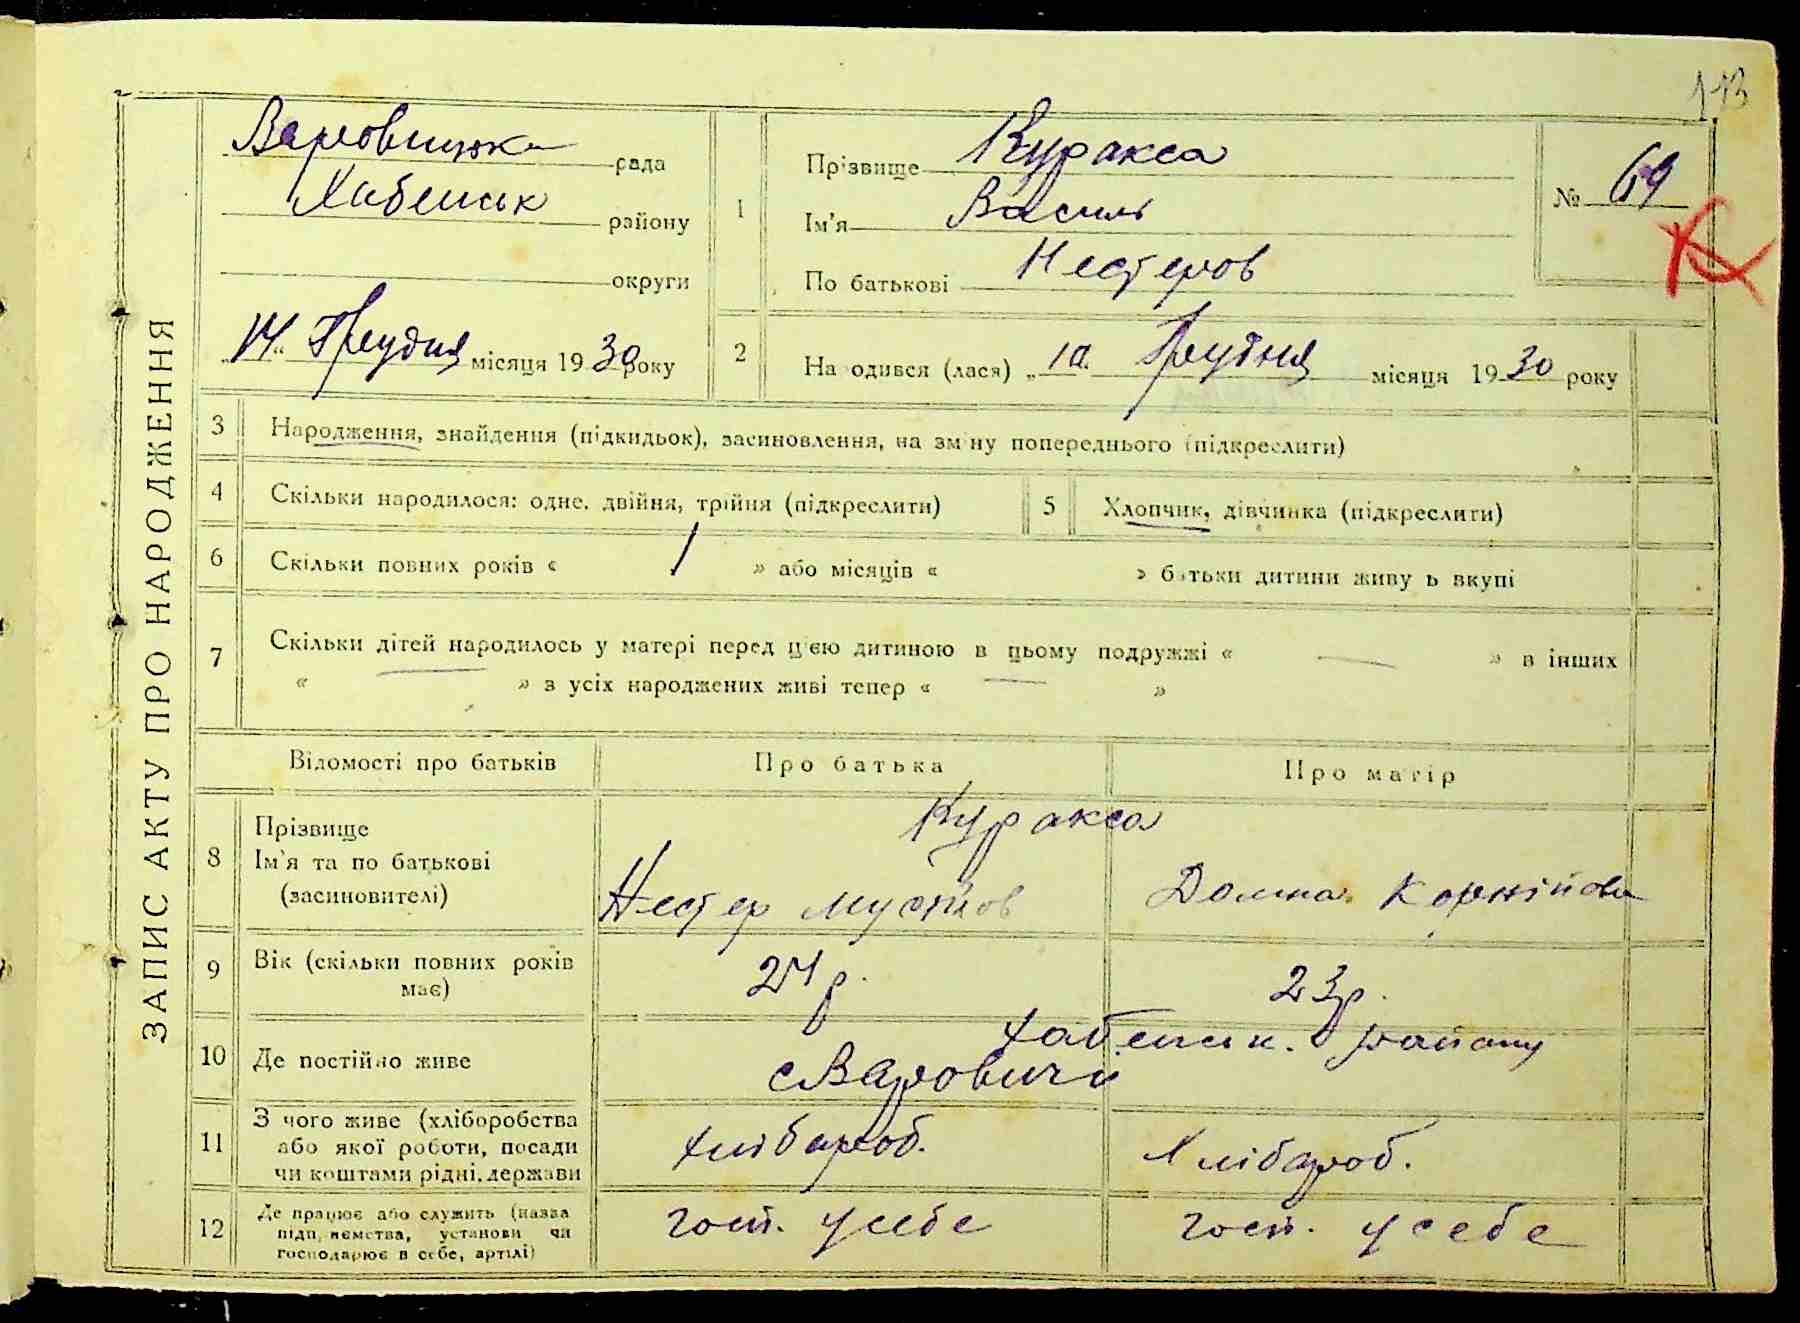 113
ЗАПИС АКТУ ПРО НАРОДЖЕННЯ
Варовицька рада
Хабенськ району
округи
"14" Грудня місяця 1930 року
1
Прізвище Куракса
Ім'я Василь
По батькові Нестеров
№ 69
2
На одився (лася) "10" Грудня місяця 1930 року
3 Народження, знайдення (підкидьок), засиновлення, на зм ну попереднього (підкреслити)
4 Скільки народилося: одне, двійня, трійня (підкреслити)
5 Хлопчик, дівчинка (підкреслити)
6 Скільки повних років « 1 » або місяців « » батьки дитини живу ь вкупі
7 Скільки дітей народилось у матері перед цією дитиною в цьому подружжі « — » в інших
« — » з усіх народжених живі тепер « — »
Відомості про батьків Про батька Про матір
8 Прізвище
Ім'я та по батькові
(засиновителі)
Куракса
Нестер Домна Корнійова
9 Вік (скільки повних років
має)
24 р. 23 р.
10 Де постійно живе
Хабенськ. району
с Варовичи
11 З чого живе (хліборобства
або якої роботи, посади
чи коштами рідні, держави
хлібароб. Хлібароб.
12 Де працює або служить (назва
підп, ємства, установи чи
господарює в себе, артілі)
госп. усебе госп. усебе